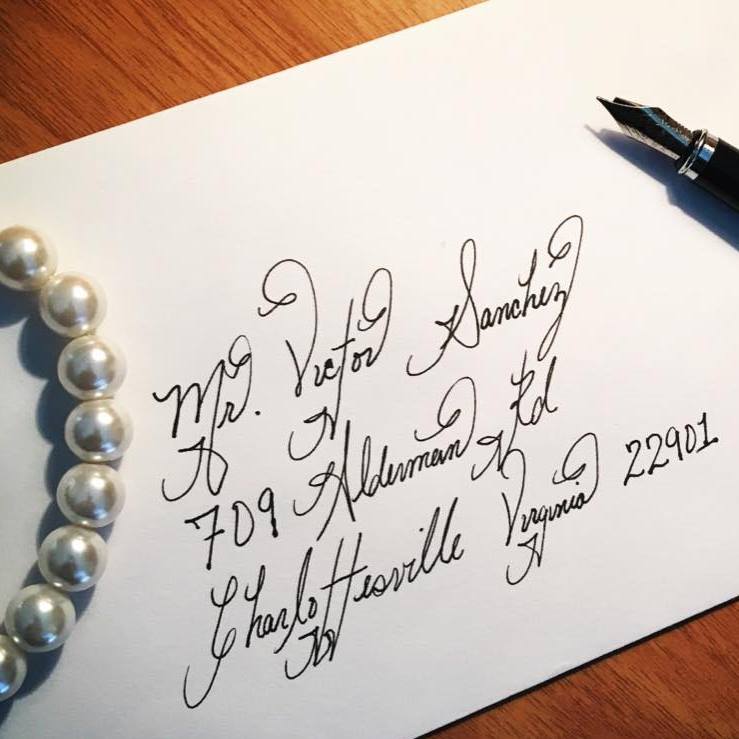 Mr. Victor Sanchez
709 Alderman Rd
Charlottesville Virginia 22901